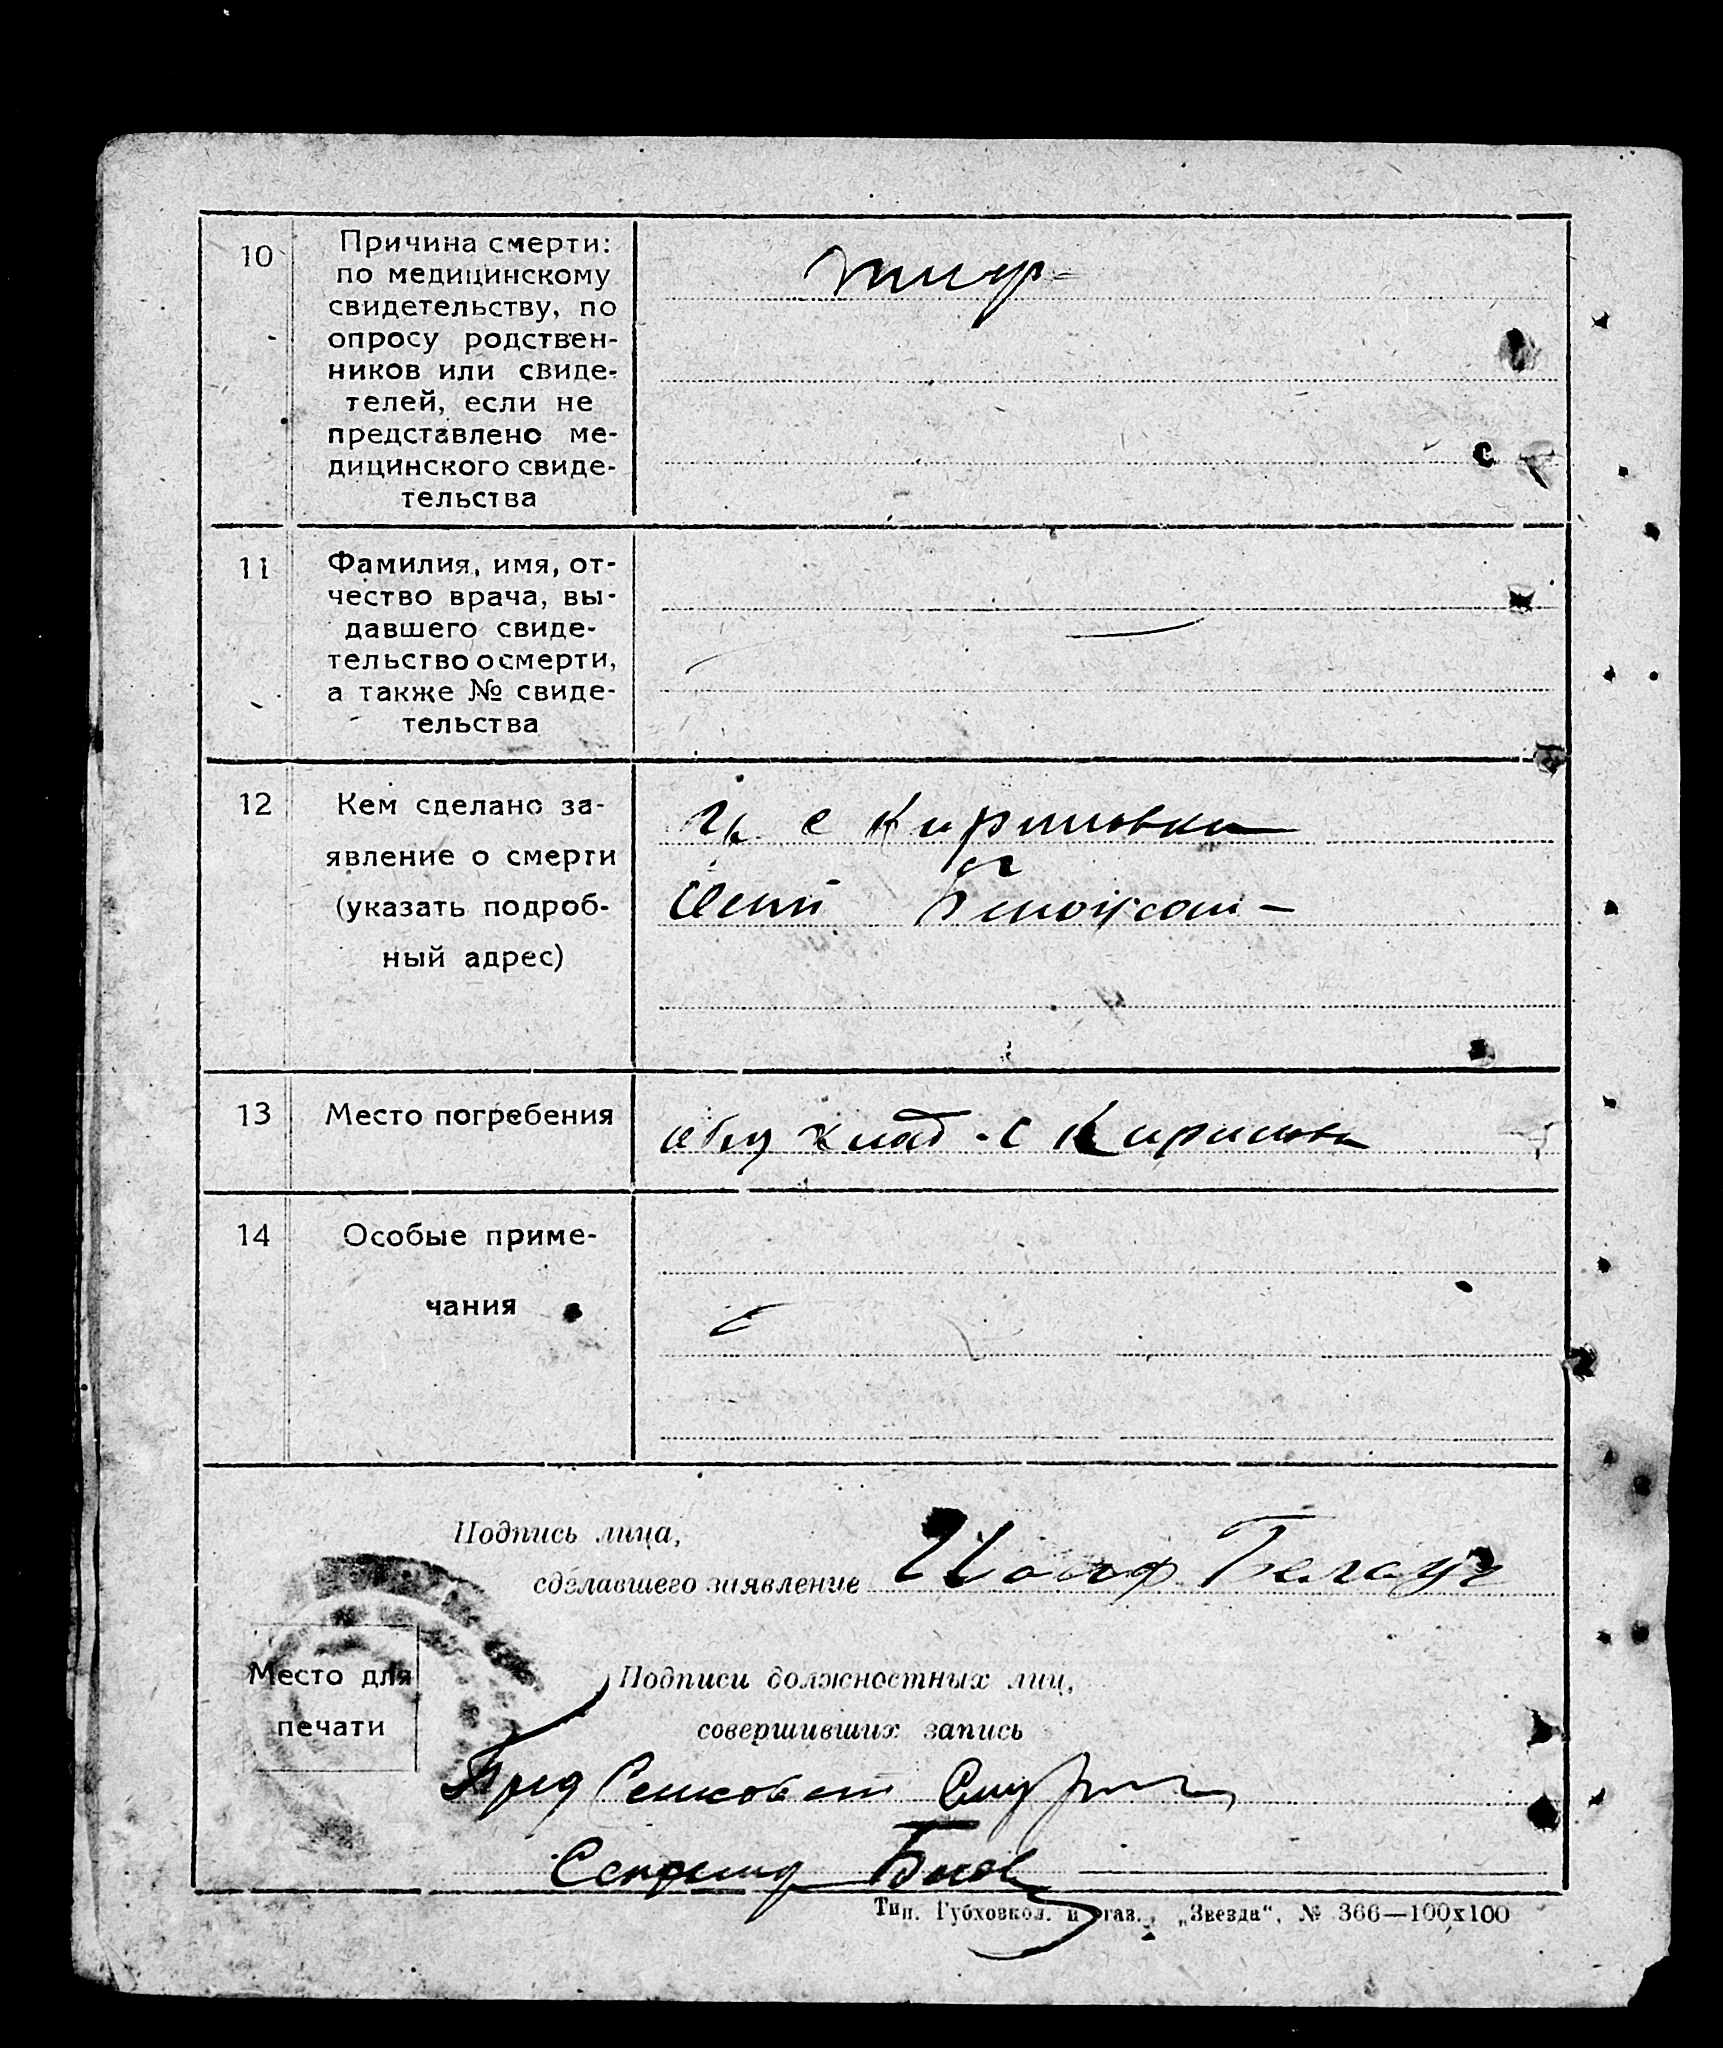 10
Причина смерти:
по медицинскому
свидетельству, по
опросу родствен-
ников или свиде-
телей, если не
представлено ме-
дицинского свиде-
тельства
тиф
11
Фамилия, имя, от-
чество врача, вы-
давшего свиде-
тельство о смерти,
а также № свиде-
тельства
12
Кем сделано за-
явление о смерти
(указать подроб-
ный адрес)
с Кириловки
13
Место погребения
клад. с Кирилов
14
Особые приме-
чания
Подпись лица,
сделавшего заявление
Место для
печати
Подписи должностных лиц,
совершивших запись
Пред Сельсовет
Секретар
Тип. Губховкол. и газ. „Звезда“, № 366—100х100